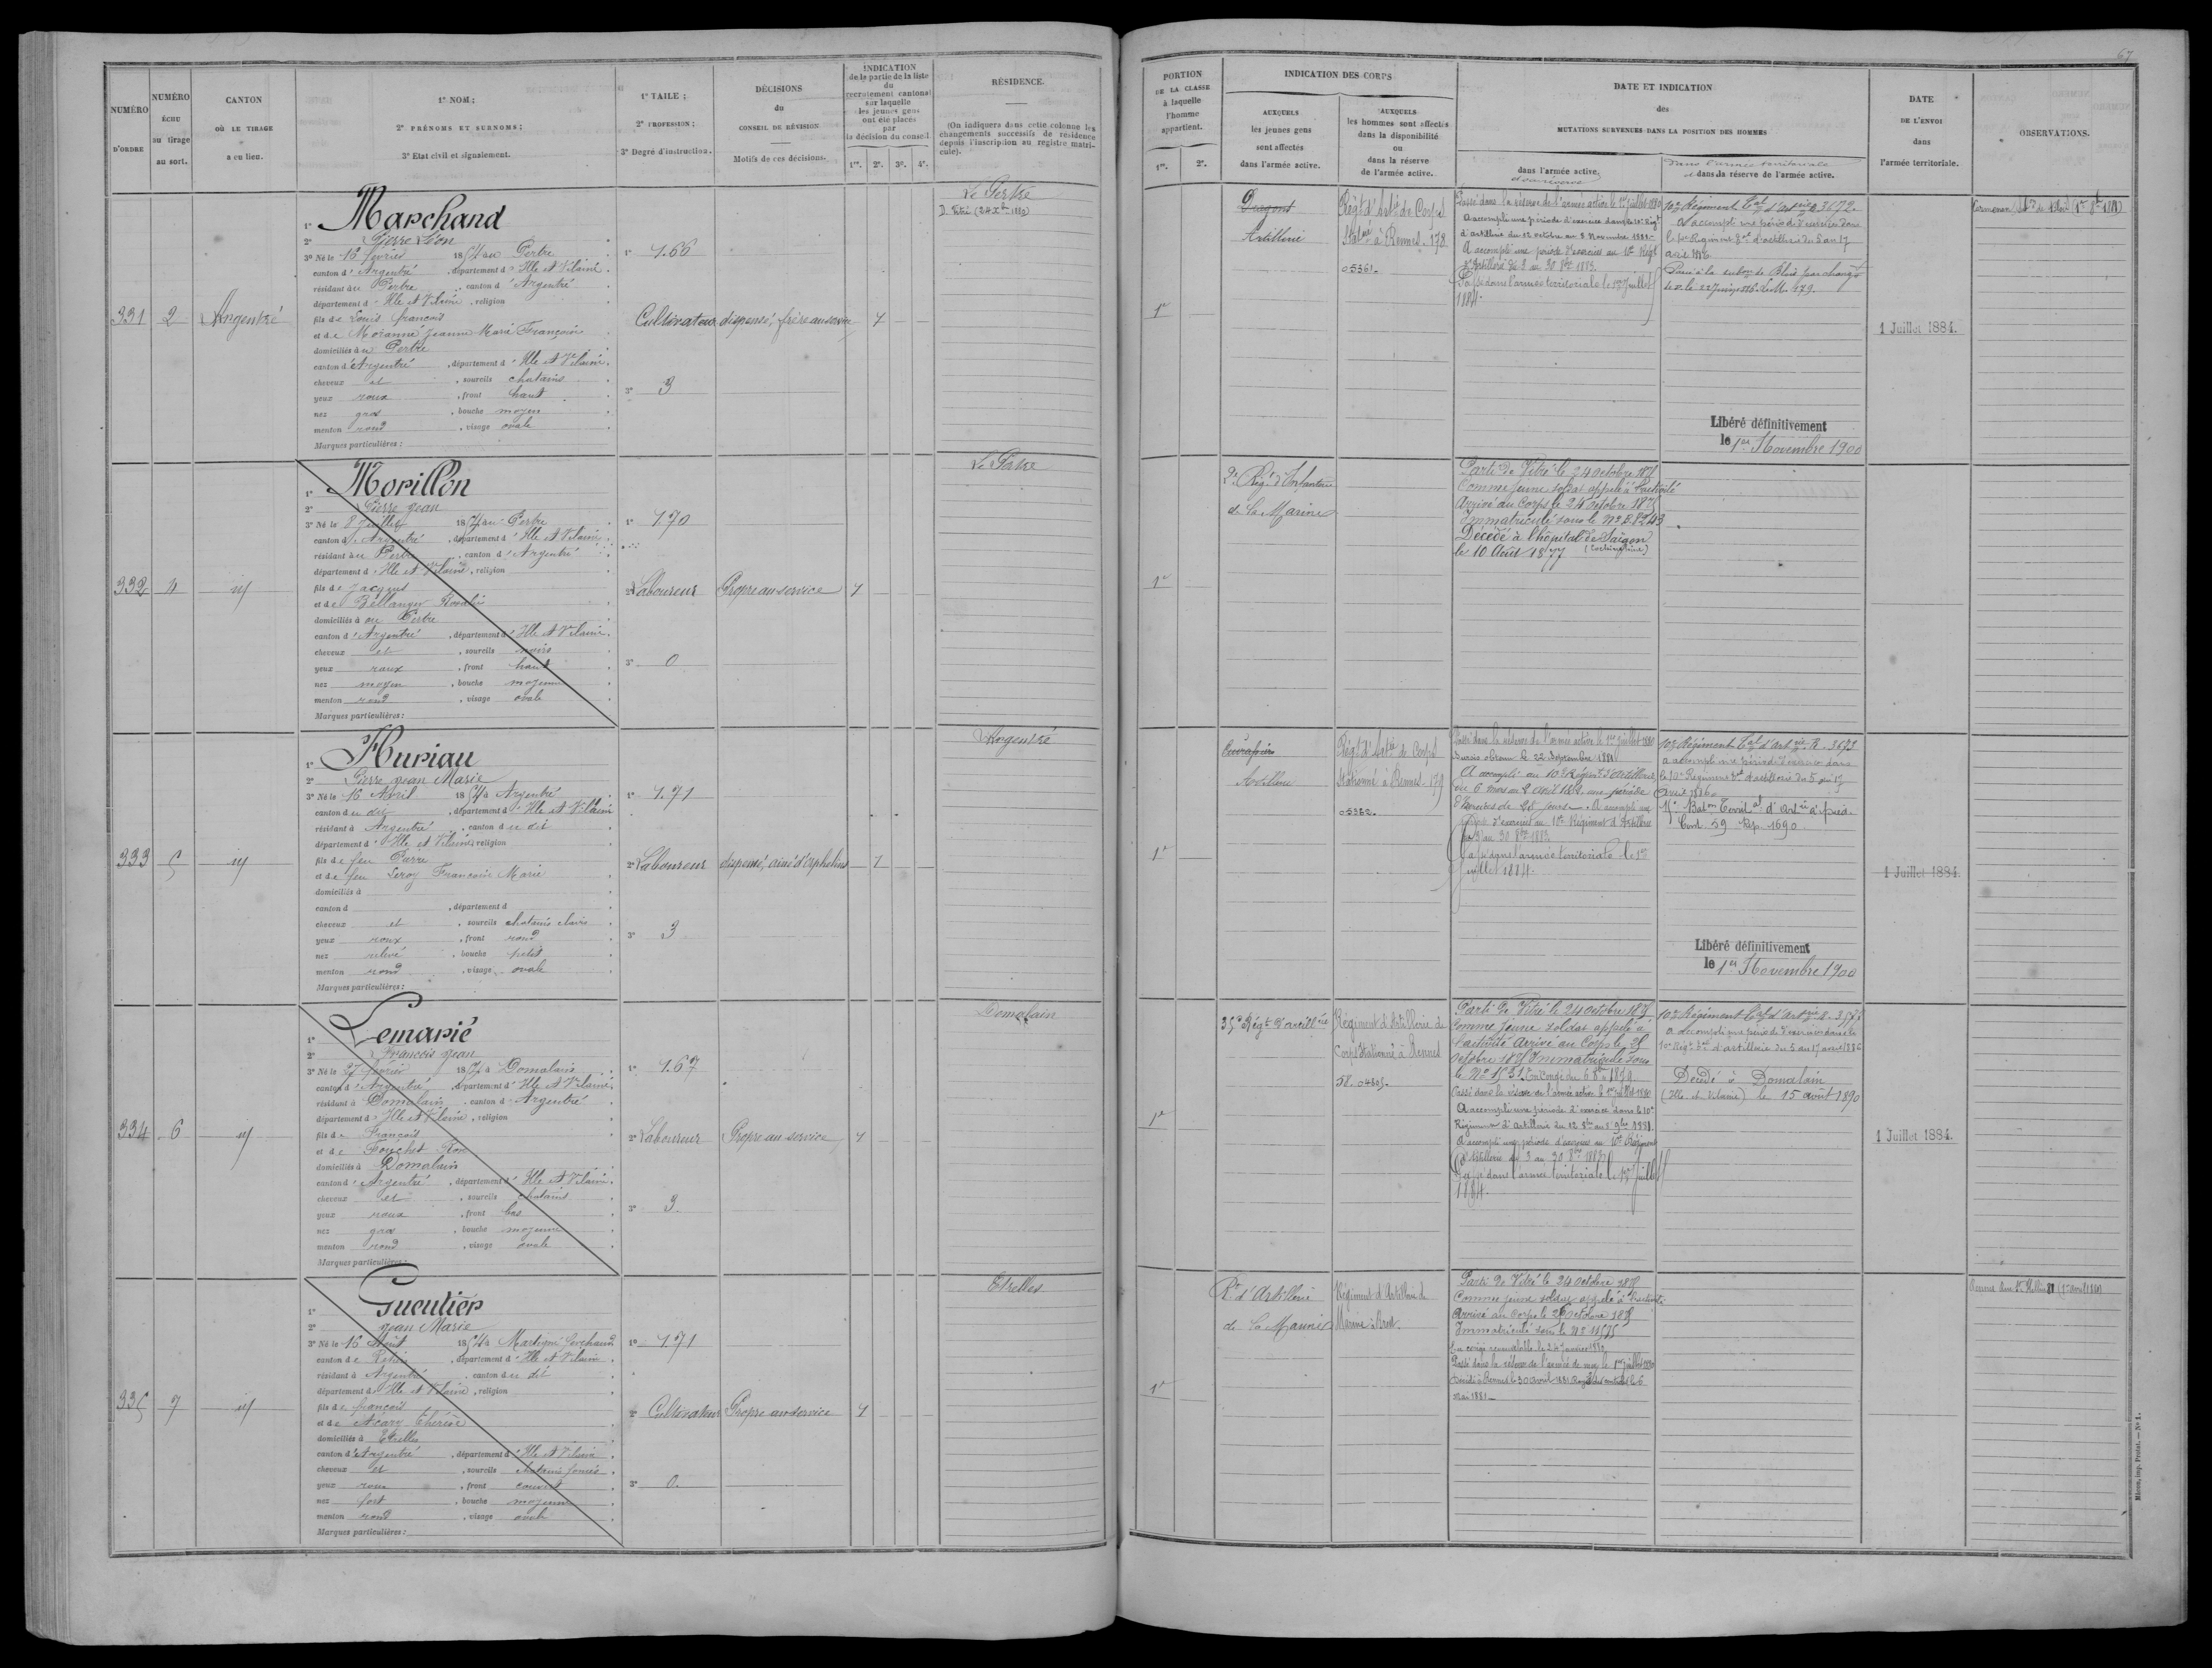 67
NUMÉRO D'ORDRE
NUMÉRO ÉCHU au tirage au sort.
CANTON OÙ LE TIRAGE a eu lieu.
1° NOM;
2° PRÉNOMS ET SURNOMS;
3° Etat civil et signalement.
1° TAILE;
2° PROFESSION;
3° Degré d'instruction.
DÉCISIONS du CONSEIL DE RÉVISION
Motifs de ces décisions.
INDICATION
de la partie de la liste
du
recrutement cantonal
sur laquelle
les jeunes gens
ont été placés
par
la décision du conseil.
1re. 2e. 3e. 4e.
RÉSIDENCE.
(On indiquera dans cette colonne les
changements successifs de résidence
depuis l'inscription au registre matri-
cule).
PORTION
DE LA CLASSE
à laquelle
l'homme
appartient.
1re. 2e.
INDICATION DES CORPS
AUXQUELS
les jeunes gens
sont affectés
dans l'armée active.
AUXQUELS
les hommes sont affectés
dans la disponibilité
ou
dans la réserve
de l'armée active.
DATE ET INDICATION
des
MUTATIONS SURVENUES DANS LA POSITION DES HOMMES
dans l'armée active
dans l'armée territoriale
et dans la réserve de l'armée active.
DATE
DE L'ENVOI
dans
l'armée territoriale.
OBSERVATIONS.
331
2
Argentré
1° Marchand
2° Pierre Léon
3° Né le 16 février 1854 au Pertre
canton d'Argentré, département d'Ille et Vilaine.
résidant au Pertre, canton d'Argentré
département d'Ille et Vilaine, religion
fils de Louis françois
et de Moranné Jeanne Marie Françoise
domiciliés au Pertre
canton d'Argentré, département d'Ille et Vilaine.
cheveux et, sourcils chatains
yeux roux, front haut
nez gros, bouche moyen
menton rond, visage ovale
Marques particulières:
1° 1.66
Cultivateur
3° 3
dispensé, frère au service
1
Le Pertre
D. Vitré
1re
Dragons
Artillerie
Régt d'Artie de Corps
à Rennes. 178
05361.
Passé dans la réserve de l'armée active le 1er juillet 1880
A accompli une période d'exercice dans le 10e Régt
d'artillerie du 12 octobre au 8 Novembre 1881.
A accompli une période d'exercices au 10e Régt
d'Artillerie du 3 au 30 8bre 1883.
Passé dans l'armée territoriale le 1er Juillet
1884.
10e Régiment d'artie R. 3672.
A accompli une période d'exercices dans
le 10e Régiment d'artillerie du 5 au 17
avril 1886
Libéré définitivement
le 1er Novembre 1900
1 Juillet 1884.
332
4
id
1° Morillon
2° Pierre Jean
3° Né le 8 juillet 1854 au Pertre
canton d'Argentré, département d'Ille et Vilaine
résidant au Pertre, canton d'Argentré
département d'Ille et Vilaine, religion
fils de Jacques
et de Bellanger Rosalie
domiciliés à au Pertre
canton d'Argentré, département d'Ille et Vilaine.
cheveux et, sourcils noirs
yeux roux, front haut
nez moyen, bouche moyenne
menton rond, visage ovale
Marques particulières:
1° 1.70
2° Laboureur
3° 0
Propre au service
1
Le Pertre
1re
2e Régt d'Infanterie
de la Marine
Parti de Vitré le 24 octobre 1875
Comme jeune soldat appelé à l'activité
Arrivé au Corps le 24 octobre 1875
Immatriculé sous le No B.8243
Décédé à l'hôpital de Saïgon
le 10 Août 1877 (Cochinchine)
333
5
id
1° Huriau
2° Pierre Jean Marie
3° Né le 16 Avril 1854 à Argentré
canton du dit, département d'Ille et Vilaine
résidant à Argentré, canton du dit
département d'Ille et Vilaine, religion
fils de feu Pierre
et de feu Leroy Françoise Marie
domiciliés à
canton d, département d
cheveux et, sourcils chatains clairs
yeux roux, front rond
nez relevé, bouche petite
menton rond, visage ovale
Marques particulières:
1° 1.71
2° Laboureur
3° 3
dispensé, ainé d'orphelins
1
Argentré
1re
Cuirassiers
Artillerie
Régt d'Artie de Corps
stationné à Rennes. 179
05362.
Passé dans la réserve de l'armée active le 1er juillet 1880
Sursis obtenu le 22 Septembre 1881
A accompli au 10e Régiment d'Artillerie,
du 6 mars au 2 avril 1882, une période
d'exercices de 28 jours. A accompli une
d'exercices au 10e Régiment d'Artillerie
du 3 au 30 8bre 1883.
Passé dans l'armée territoriale le 1er
Juillet 1884.
10e Régiment d'artie R. 3673
a accompli une période d'exercices dans
le 10e Régiment d'artillerie du 5 au 17
avril 1886
11e Baton Territal d'Artie à pied.
Cont. 59 Rép. 1690
Libéré définitivement
le 1er Novembre 1900
1 Juillet 1884.
334
6
id
1° Lemarié
2° François Jean
3° Né le 27 février 1854 à Domalain
canton d'Argentré, département d'Ille et Vilaine
résidant à Domalain, canton d'Argentré
département d'Ille et Vilaine, religion
fils de François
et de Fouchet
domiciliés à Domalain
canton d'Argentré, département d'Ille et Vilaine.
cheveux et, sourcils chatains
yeux roux, front bas
nez gros, bouche moyenne
menton rond, visage ovale
Marques particulières:
1° 1.67
2° Laboureur
3° 3
Propre au service
1
Domalain
1re
35e Régt d'artillerie
Régiment d'Artillerie de
Corps stationné à Rennes
58. 04505.
Parti de Vitré le 24 octobre 1875
Comme jeune soldat appelé à
l'activité Arrivé au Corps le 25
octobre 1875 Immatriculé sous
le No 1531. En Congé du 6 8bre 1879
Passé dans la réserve de l'armée active le 1er juillet 1880
A accompli une période d'exercice dans le 10e
Régiment d'Artillerie du 12 8bre au 8 9bre 1881.
A accompli une période d'exercices au 10e Régiment
d'Artillerie du 3 au 30 8bre 1883
Passé dans l'armée territoriale le 1er Juillet
1884.
10e Régiment d'artie R.
a accompli une période d'exercices dans le
10e Régt d'artillerie du 5 au 17 avril 1886
Décédé à Domalain
(Ille et Vilaine) le 15 août 1890
1 Juillet 1884.
335
7
id
1° Gueutier
2° Jean Marie
3° Né le 16 Août 1854 à Martigné ferchaud
canton de Rethiers, département d'Ille et Vilaine
résidant à Argentré, canton du dit
département d'Ille et Vilaine, religion
fils de françois
et de Acary Thérèse
domiciliés à Etrelles
canton d'Argentré, département d'Ille et Vilaine
cheveux et, sourcils chatains foncés
yeux roux, front couvert
nez fort, bouche moyenne
menton rond, visage ovale
Marques particulières:
1° 1.71
2° Cultivateur
3° 0.
Propre au service
1
Etrelles
1re
Rt d'Artillerie
de la Marine
Régiment d'Artillerie de
Marine à Brest.
Parti de Vitré le 24 octobre 1875
Comme jeune soldat appelé à l'activité
Arrivé au corps le 26 octobre 1875
Immatriculé sous le No 11575
En congé renouvelable le 24 janvier 1880
Passé dans la réserve de l'armée de mer le 1er juillet 1880
Décédé à Rennes le 30 avril 1881 Rayé des contrôles le 6
mai 1881.
Rennes
Micon, imp. Protat. — No 1.